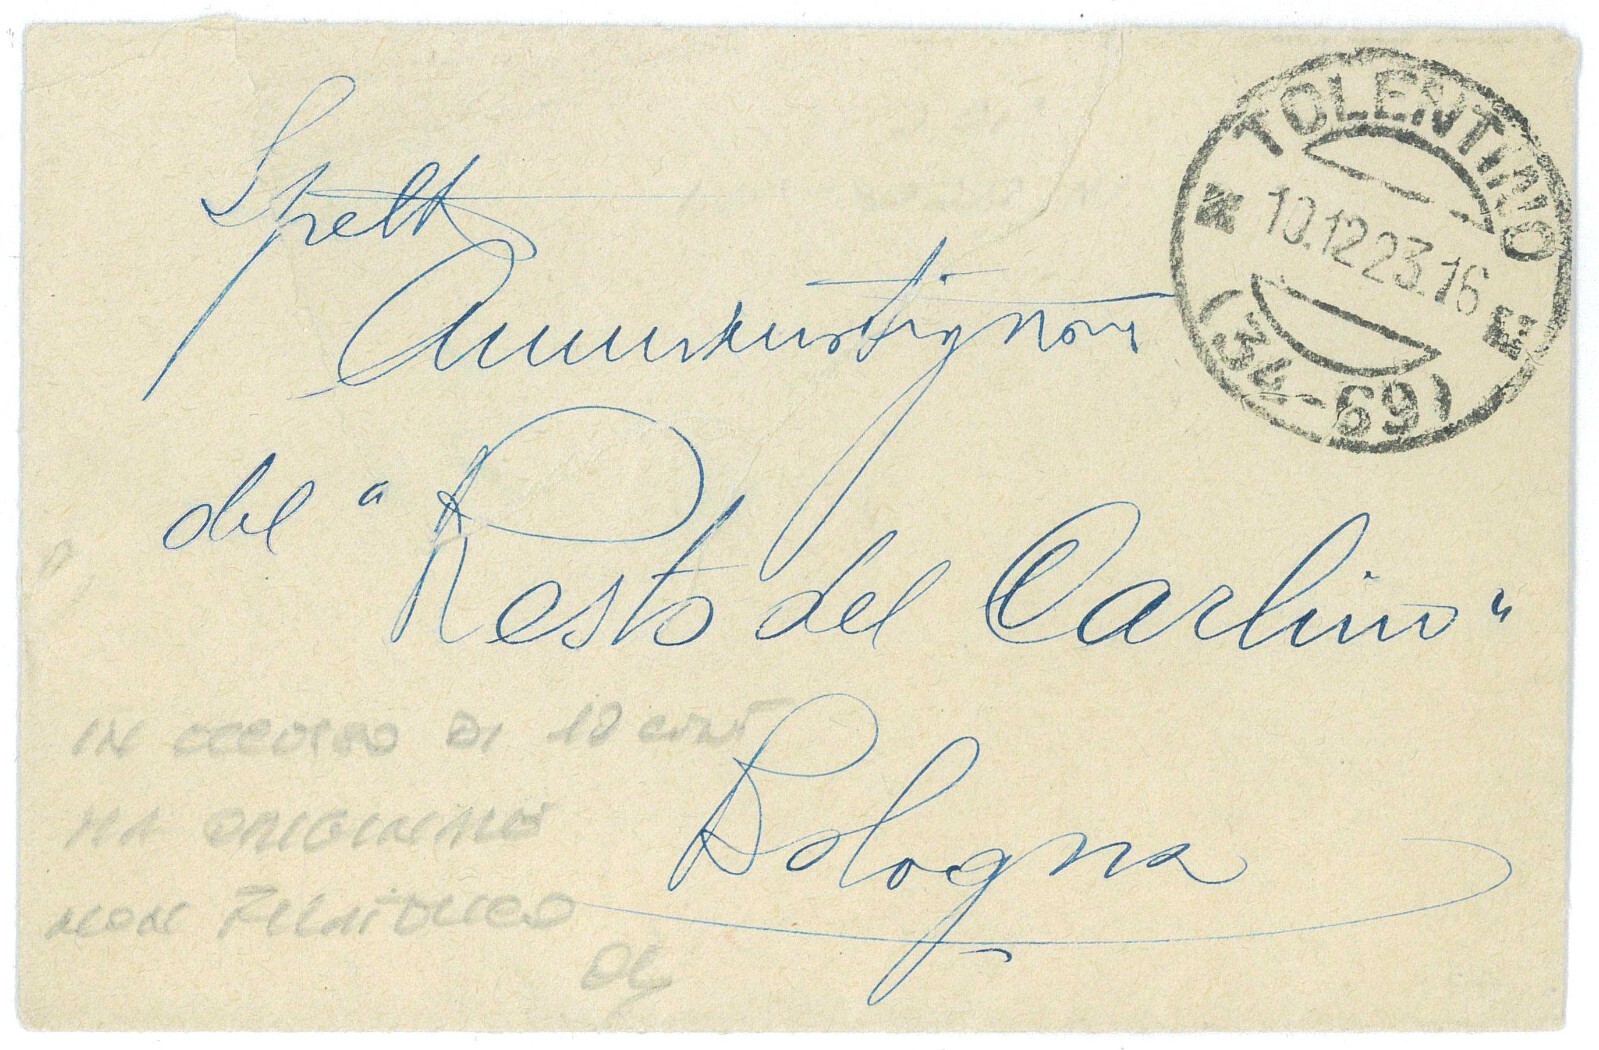 TOLENTINO
10.12 23.16
(34-69)
Spett
Amministrazione
del "Resto del Carlino"
Bologna
IN ECCESSO DI 10 CENT
MA ORIGINALE
NON FILATELICO